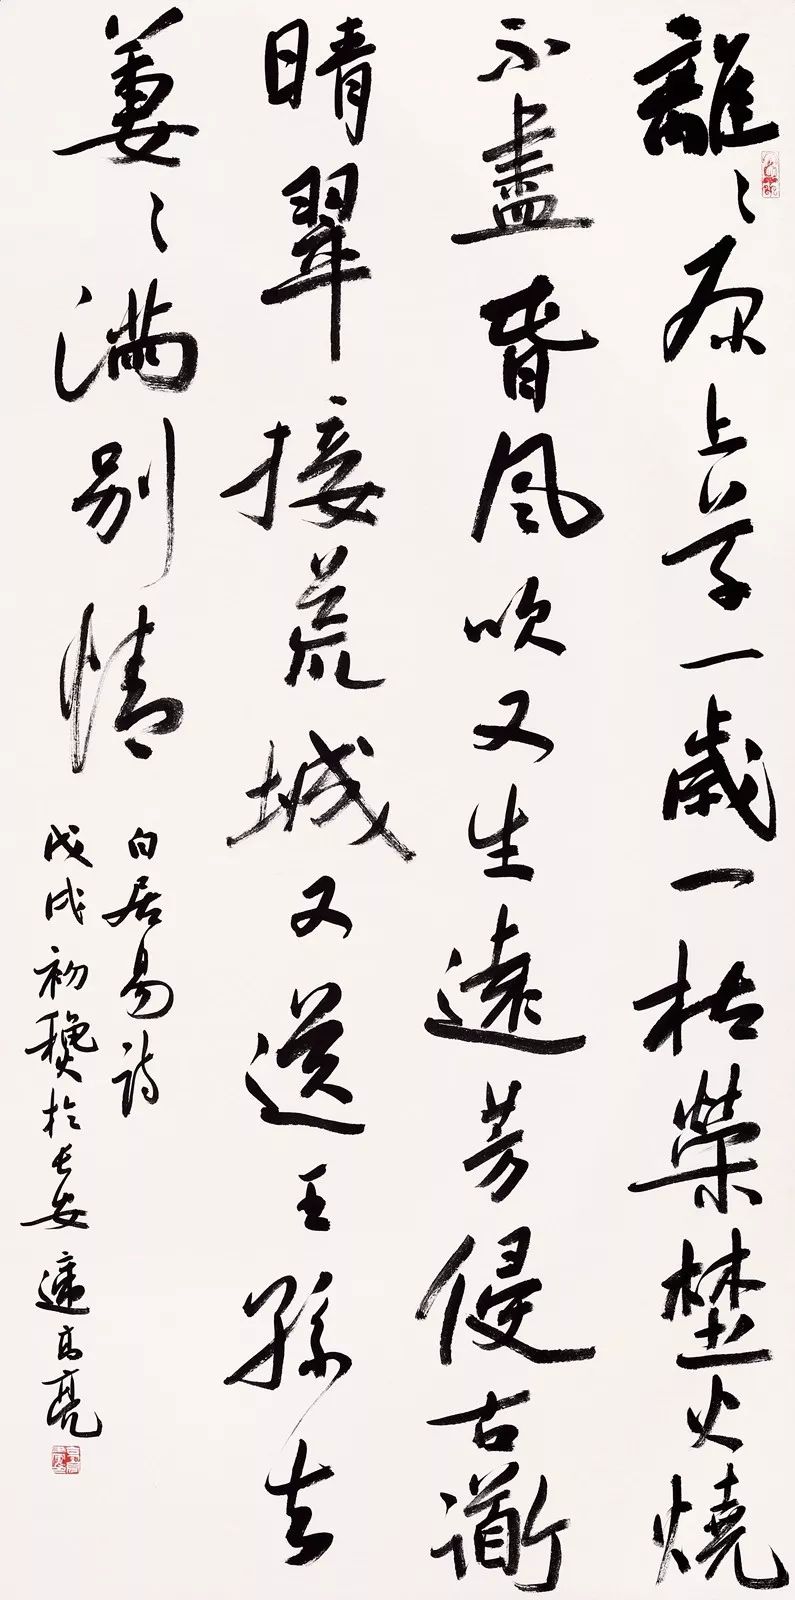 離〻原上草一歲一枯榮埜火燒
不盡春風吹又生遠芳侵古衟
晴翠接荒城又送王孫去
萋〻滿別情
白居易詩
戊戌初龝於長安遆高亮